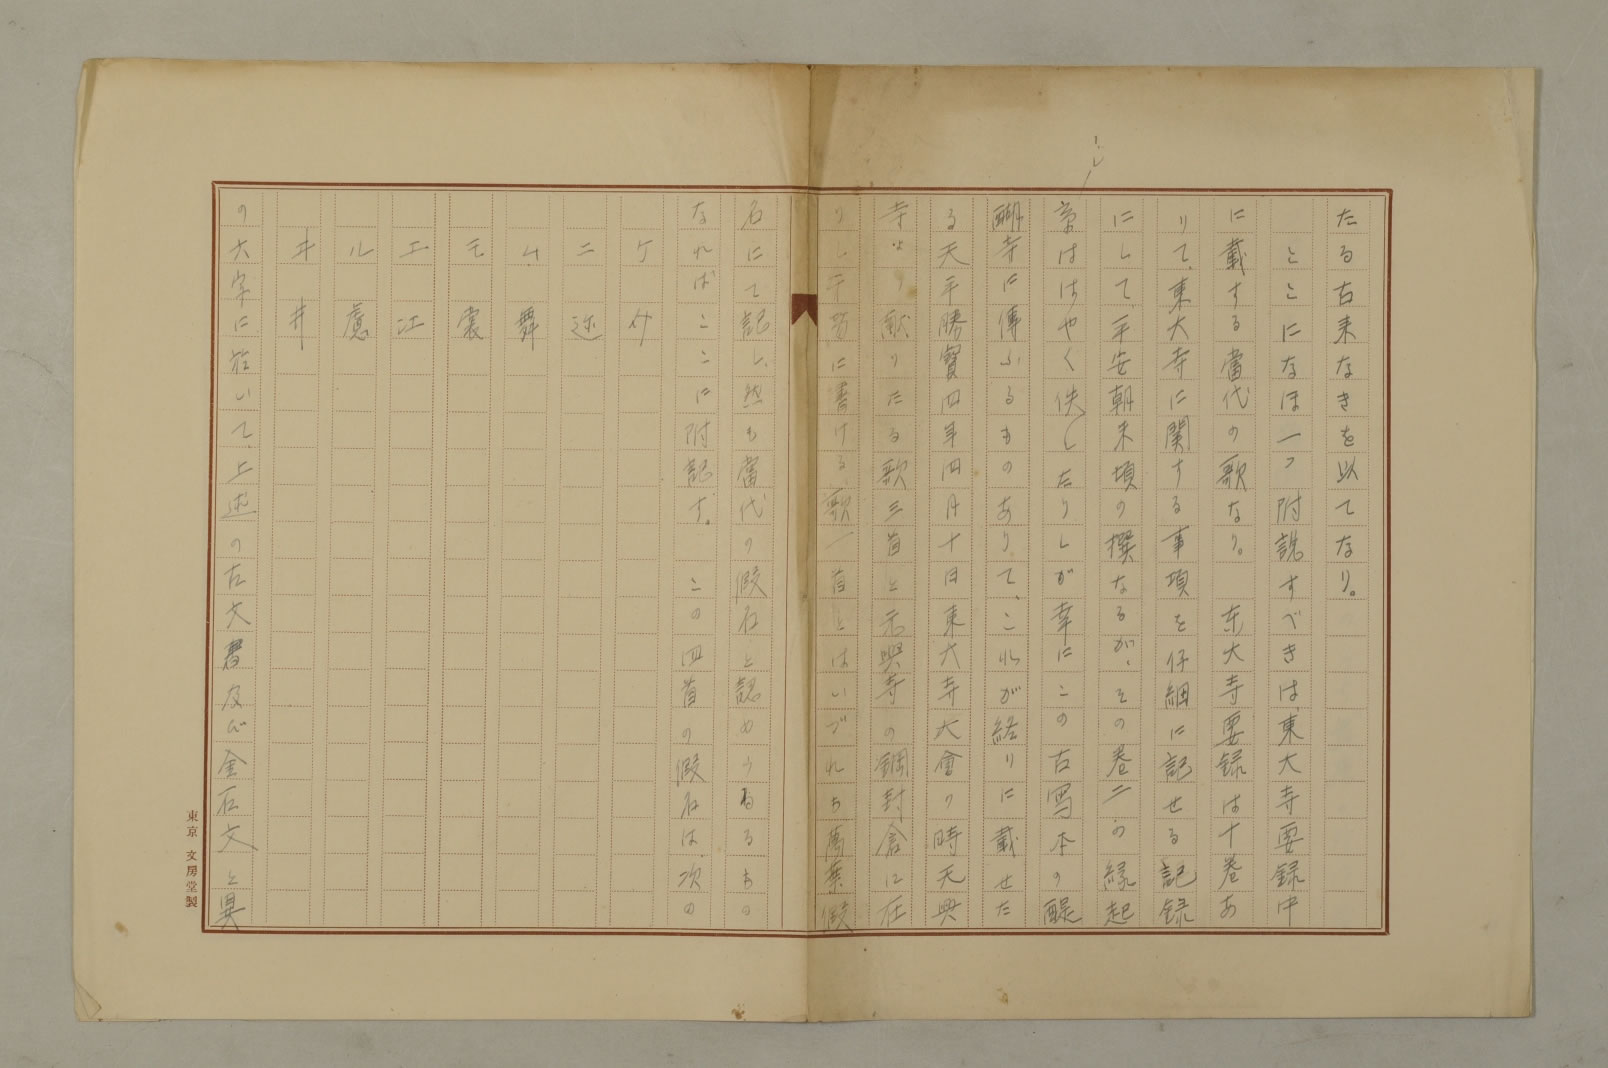 たる古来なきを以てなり。
とこになほ一つ附説すべきは、東大寺要録中
に載する當代の歌なり。 东大寺要録は十卷あ
りて、東大寺に関する事項を仔細に記せる記録
にして、平安朝末頃の撰なるが、その卷二の縁起
章ははやく佚したりしが幸にこの古写本の醍
醐寺に傳ふるものありて、これが終りに載せた
る天平勝寳四年四月十日東大寺大會の時元興
寺より献りたる歌三首と元興寺の綱封倉に在
りし牙笏に書ける歌一首とはいづれも萬葉假
名にて記し、然も當代の假名と認めうるもの
なればここに附記す。 この四首の假名は、次の
ケ
ニ 迩
ム 舞
モ 裳
エ 江
ル 慮
井 井
の六字に於いて、上述の古文書及び金石文と異
東京 文房堂製